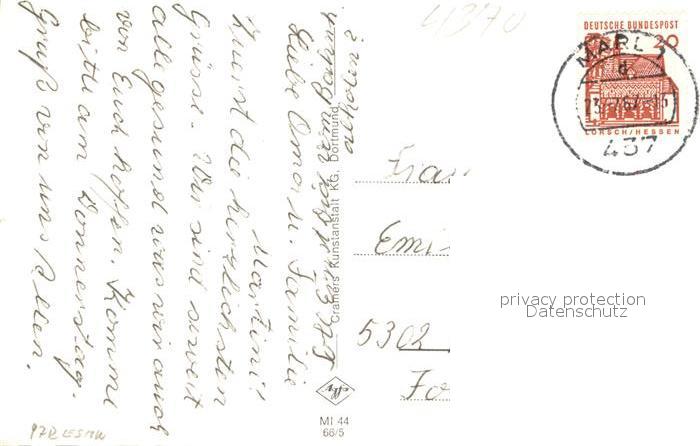 Liebe Oma u. Familie
Martini!
Zuerst die herzlichsten
Grüsse. Wir sind soweit
alle gesund was wir auch
von Euch hoffen. Komme
bitte am Donnerstag.
Gruß von uns Allen.
abholen?
Cramers Kunstanstalt KG, Dortmund
MI 44
66/5
4370
DEUTSCHE BUNDESPOST
20
LORSCH/HESSEN
MARL 1
d
437
Emi
5302
privacy protection
Datenschutz